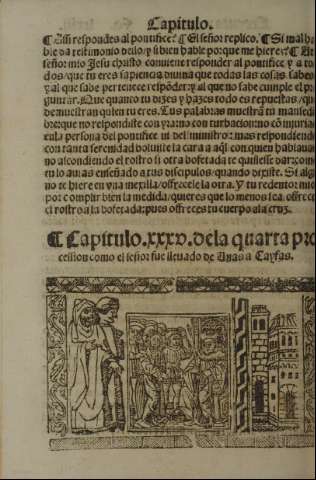 Capitulo.
¶ Assi respondes al pontifice? ¶ El señor replico. ¶ Si mal ha
ble da testimonio dello/ y si bien hable porque me hieres? ¶ 
señor mio Jesu christo conuiene responder al pontifice y a to
dos/que tu eres sapiencia diuina que todas las cosas sabes
y al que sabe pertenece respōder: y al que no sabe cumple el pre
guntar. Que quanto tu dizes y hazes todo es repuestas/que
demuestran quien tu eres. Tus palabras muestrā tu mansedū
bre: que no respondiste con yra mo con turbacion: no cō injuria
la persona del pontifice ni del ministro: mas respondiendo
con tanta serenidad boluiste la cara a aq̄l con quien hablauas
no ascondiendo el rostro si otra bofetada te quisiesse dar: como
tu lo auias enseñado a tus discipulos/quando dixiste. Si algu
no te hiere en vna mexilla/offrecele la otra. Y tu redentor mio
por complir bien la medida/quieres que lo menos sea. offrecer
el rostro a la bofetada: pues offreces tu cuerpo a la cruz.
¶ Capitulo.xxxv. dela quarta pro
cession como el señor fue lleuado de Anas a Cayfas.